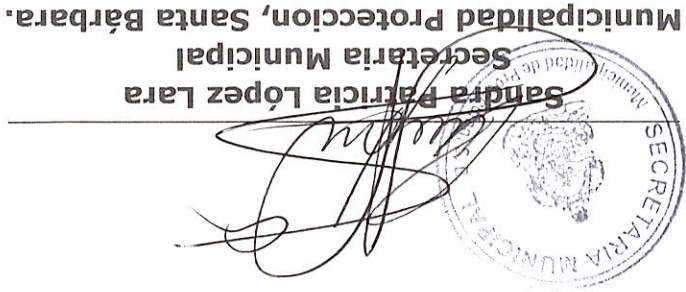 Sandra Patricia López Lara
Secretaria Municipal
Municipalidad Proteccion, Santa Bárbara.
SECRETARIA MUNICIPAL
Municipalidad de